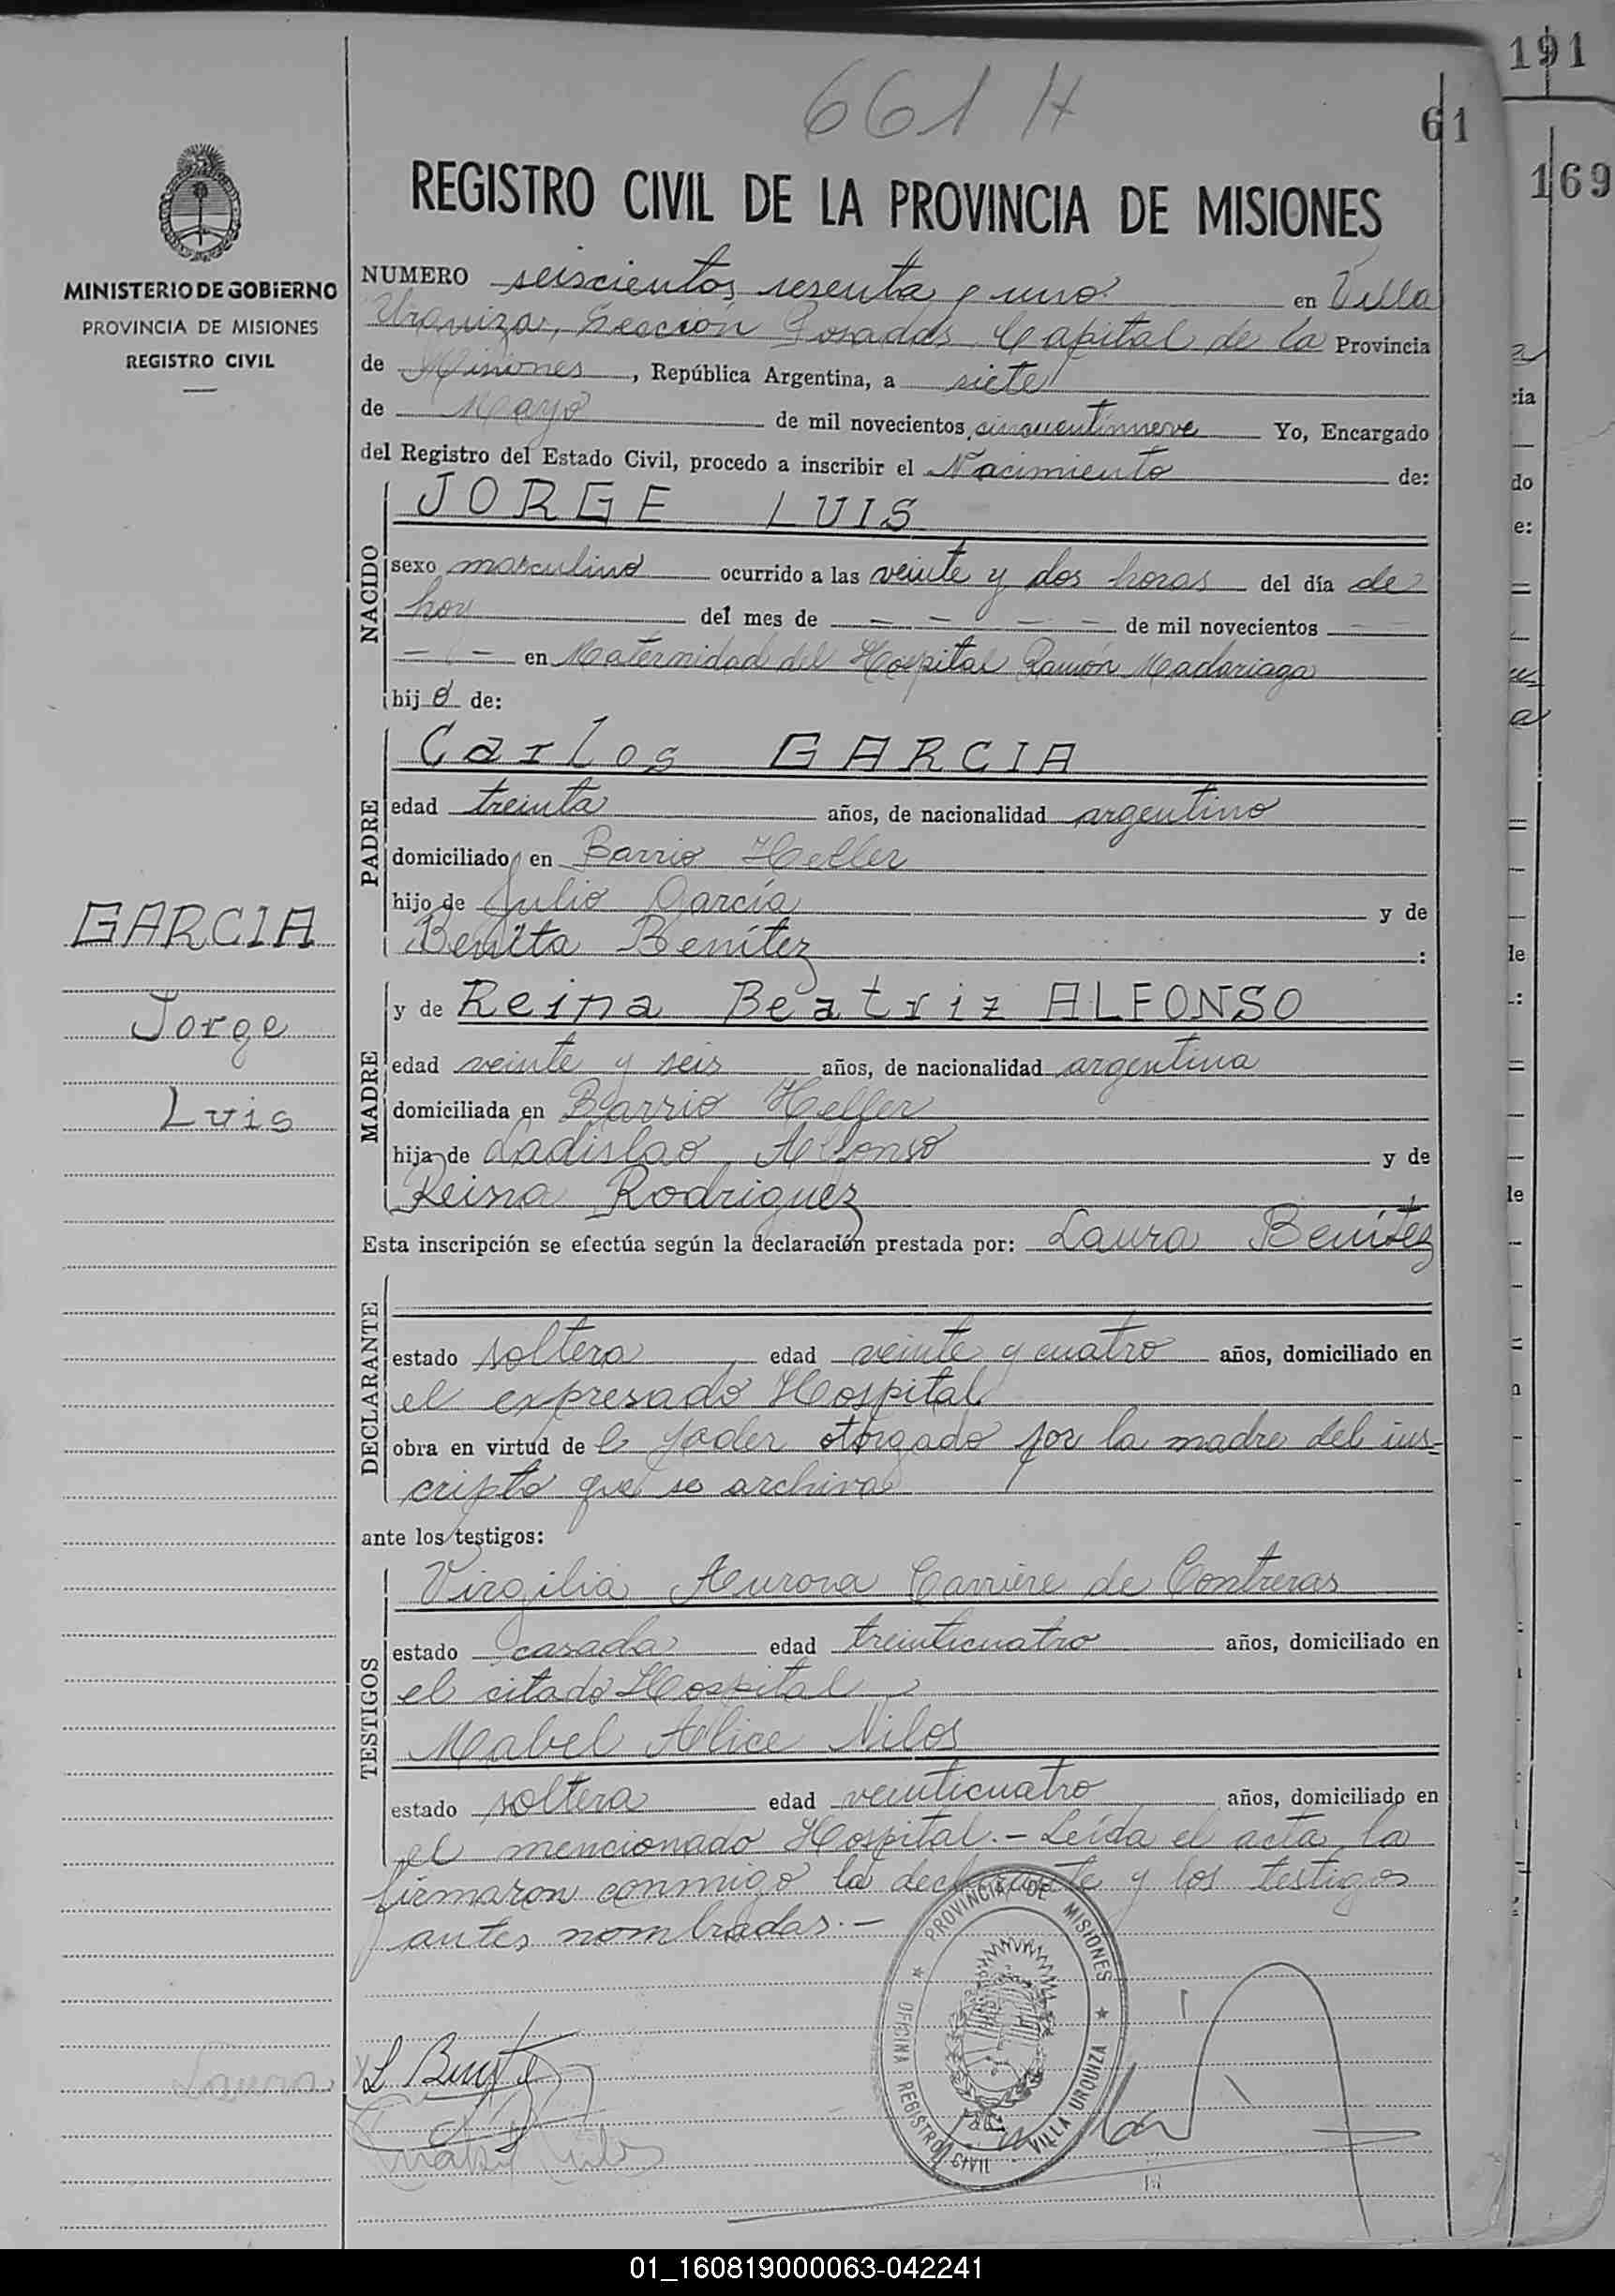 191
661 H
61
169
REGISTRO CIVIL DE LA PROVINCIA DE MISIONES
MINISTERIO DE GOBIERNO
PROVINCIA DE MISIONES
REGISTRO CIVIL
NUMERO seiscientos sesenta y uno en Villa
Urquiza, Sección Posadas Capital de la Provincia
de Misiones, República Argentina, a siete
de Mayo de mil novecientos cincuentinueve Yo, Encargado
del Registro del Estado Civil, procedo a inscribir el Nacimiento de:
NACIDO
JORGE LUIS
sexo masculino ocurrido a las veinte y dos horas del día de
hoy del mes de - - - - de mil novecientos - -
- - en Maternidad del Hospital Ramón Madariaga
hijo de:
PADRE
Carlos GARCIA
edad treinta años, de nacionalidad argentino
domiciliado en Barrio Heller
hijo de Julio García y de
Benita Benítez :
GARCIA
Jorge
Luis
MADRE
y de Reina Beatriz ALFONSO
edad veinte y seis años, de nacionalidad argentina
domiciliada en Barrio Heller
hija de Ladislao Alfonso y de
Reina Rodriguez
Esta inscripción se efectúa según la declaración prestada por: Laura Benítez
DECLARANTE
estado soltera edad veinte y cuatro años, domiciliado en
el expresado Hospital
obra en virtud de l poder otorgado por la madre del ins-
cripto que se archiva
ante los testigos:
TESTIGOS
Virgilia Aurora Carriere de Contreras
estado casada edad treinticuatro años, domiciliado en
el citado Hospital
Mabel Alice Nilos
estado soltera edad veinticuatro años, domiciliado en
el mencionado Hospital.- Leída el acta, la
firmaron conmigo la declarante y los testigos
antes nombradas.-
PROVINCIA DE MISIONES
OFICINA REGISTRO CIVIL VILLA URQUIZA
Laura
01_160819000063-042241